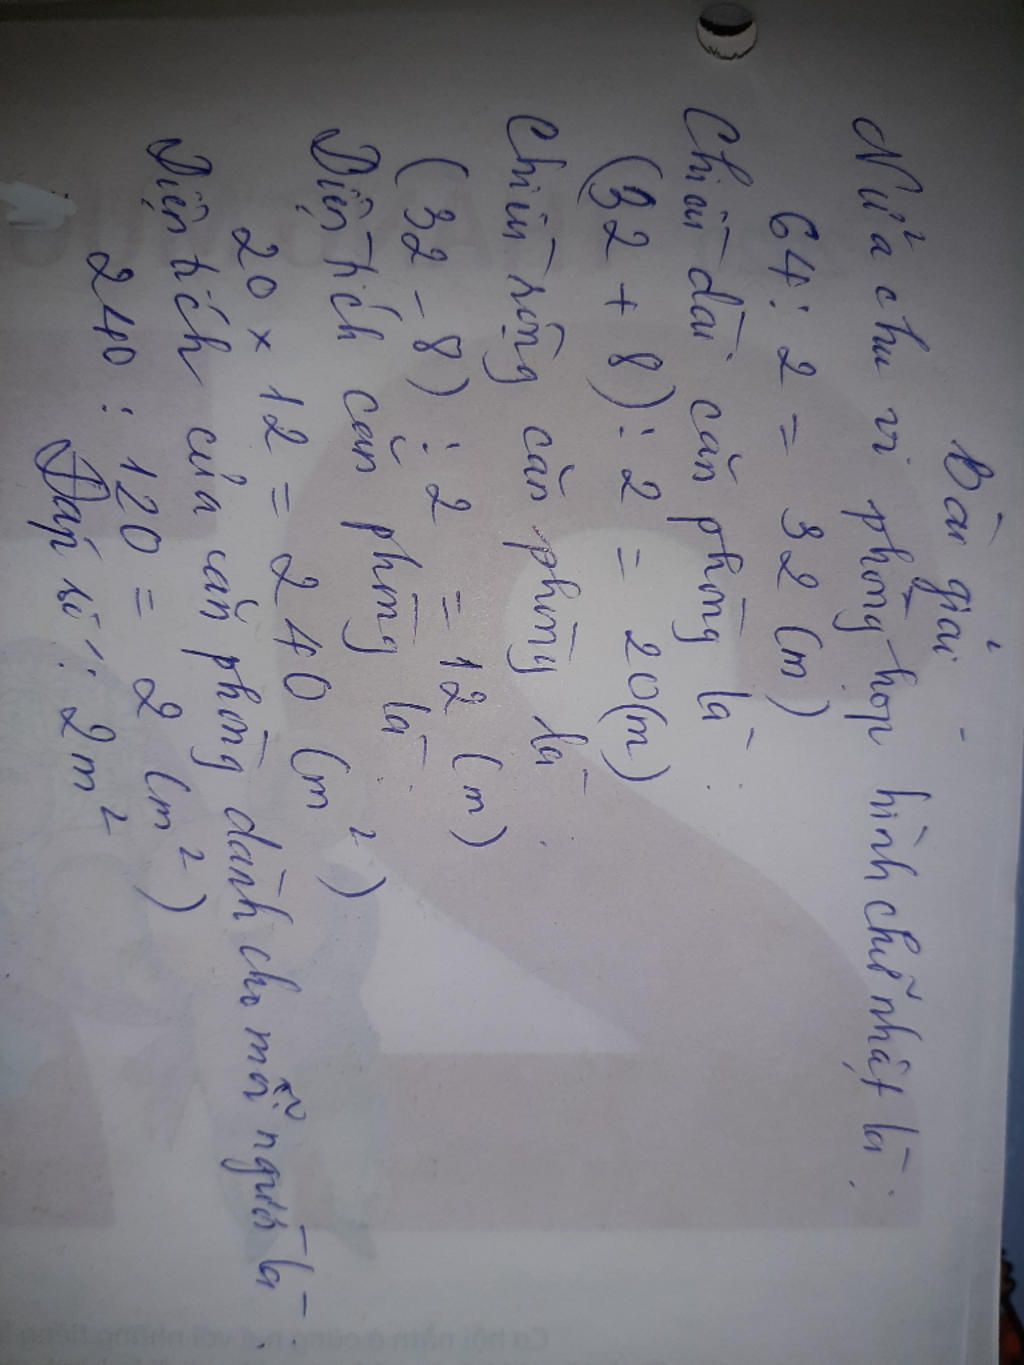 Bài giải
Nửa chu vi phòng họp hình chữ nhật là:
64 : 2 = 32 (m)
Chiều dài căn phòng là:
(32 + 8) : 2 = 20 (m)
Chiều rộng căn phòng là:
(32 - 8) : 2 = 12 (m)
Diện tích căn phòng là:
20 × 12 = 240 (m²)
Diện tích của căn phòng dành cho mỗi người là:
240 : 120 = 2 (m²)
Đáp số: 2m²